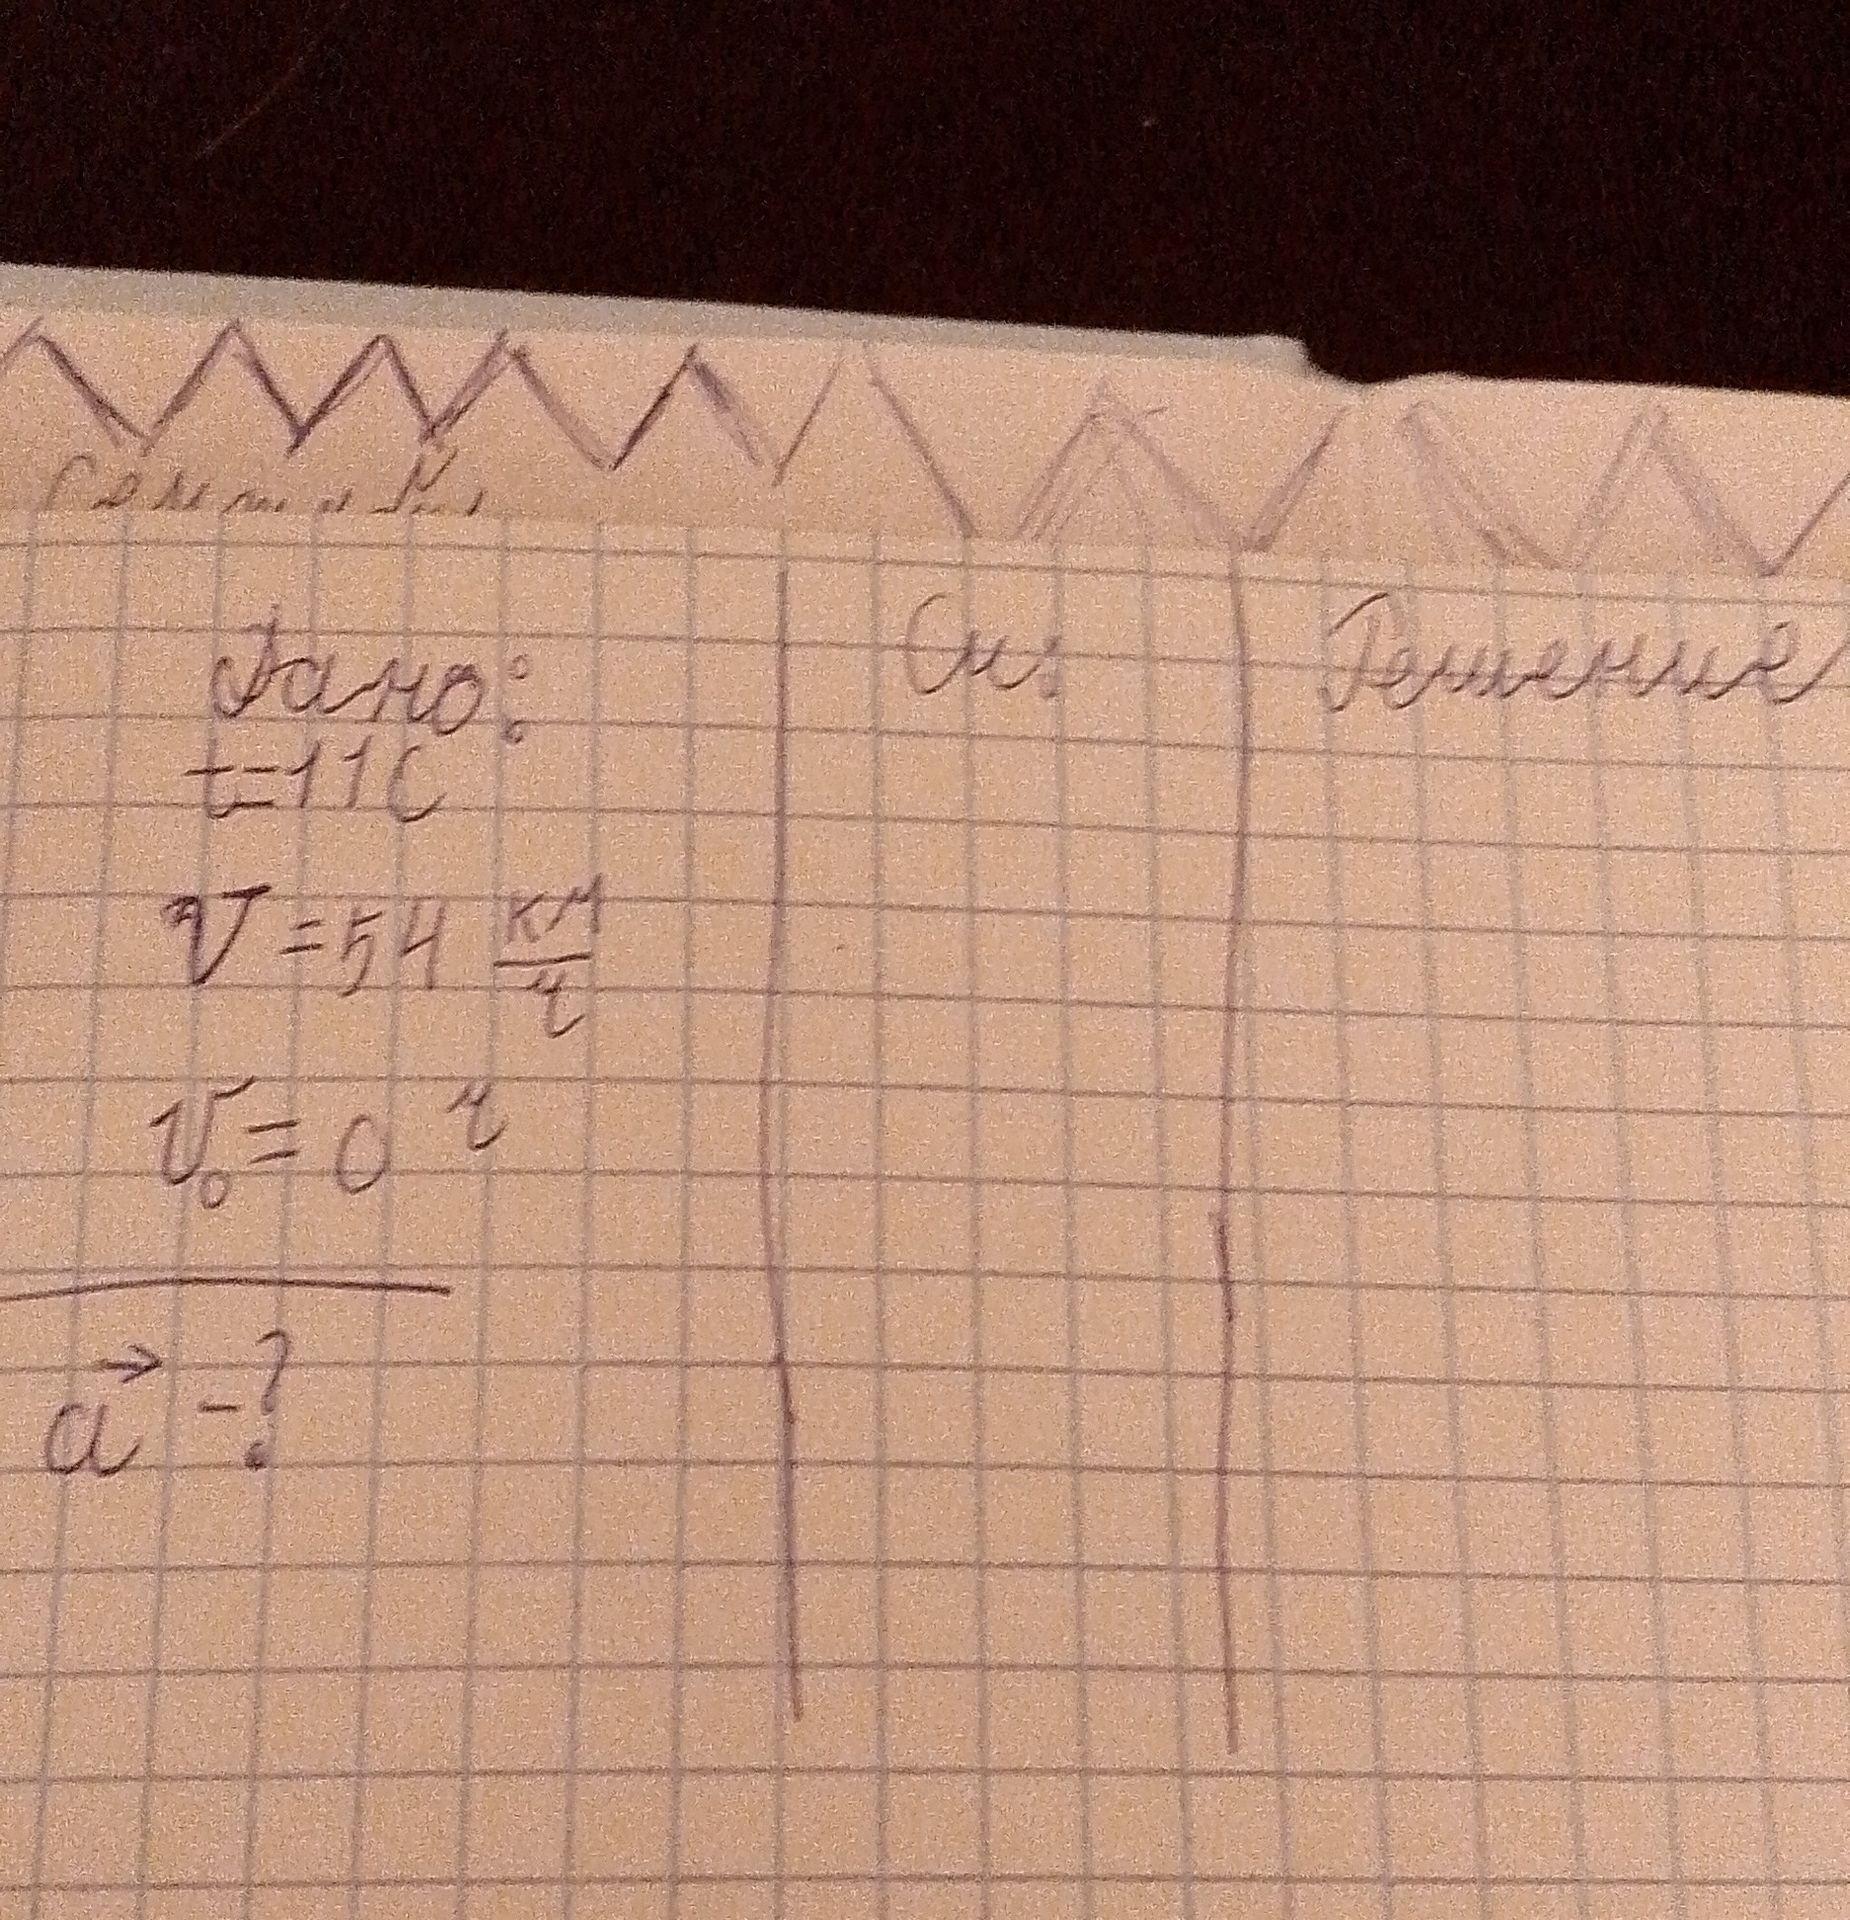 Дано:
t=11C
V=54 км/ч
V₀=0 ч
a⃗ -?
Си:
Решение